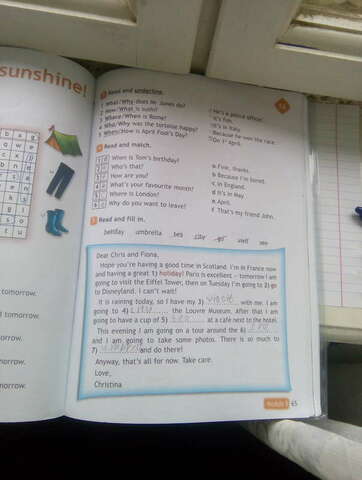 sunshine!
1 Read and underline.
1 What/Why does Mr Jones do?
2 How/What is sushi?
3 Where/When is Rome?
4 Who/Why was the tortoise happy?
5 When/How is April Fool's Day?
He's a police officer.
It's fish.
It's in Italy.
Because he won the race.
On 1st April.
14
Read and match.
1 When is Tom's birthday?
2 Who's that?
3 How are you?
4 What's your favourite month?
5 Where is London?
6 Why do you want to leave?
a Fine, thanks.
b Because I'm bored.
c In England.
d It's in May.
e April.
f That's my friend John.
Read and fill in.
umbrella
Dear Chris and Fiona,
Hope you're having a good time in Scotland. I'm in France now
and having a great 1) holiday! Paris is excellent - tomorrow I am
going to visit the Eiffel Tower, then on Tuesday I'm going to 2) go
to Disneyland. I can't wait!
It is raining today, so I have my 3) with me. I am
going to 4) the Louvre Museum, after that I am
going to have a cup of 5) tea at a café next to the hotel.
This evening I am going on a tour around the 6)
and I am going to take some photos. There is so much to
7) and do there!
Anyway, that's all for now. Take care.
Love,
Christina
tomorrow.
tomorrow.
morrow.
morrow.
morrow.
Module 5 65